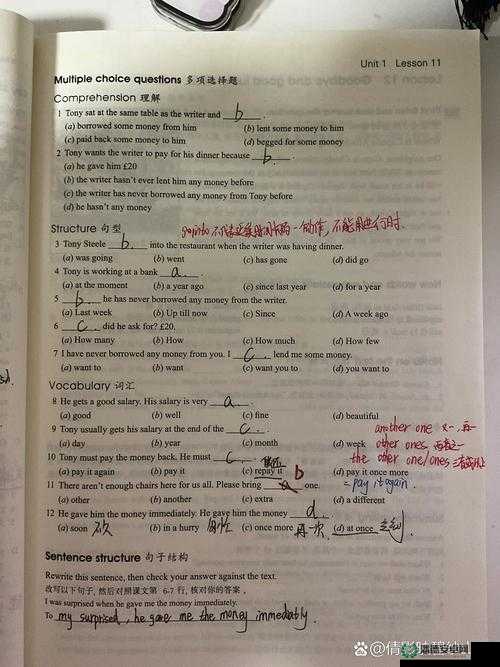 Unit 1 Lesson 11
Multiple choice questions 多项选择题
Comprehension 理解
1 Tony sat at the same table as the writer and b .
(a) borrowed some money from him (b) lent some money to him
(c) paid back some money to him (d) begged for some money
2 Tony wants the writer to pay for his dinner because b .
(a) he gave him £20
(b) the writer hasn't ever lent him any money before
(c) the writer has never borrowed any money from Tony before
(d) he hasn't any money
Structure 句型
一动作, 不能用进行时.
3 Tony Steele b. into the restaurant when the writer was having dinner.
(a) was going (b) went (c) has gone (d) did go
4 Tony is working at a bank a .
(a) at the moment (b) a year ago (c) since last year (d) for a year
5 b. he has never borrowed any money from the writer.
(a) Last week (b) Up till now (c) Since (d) A week ago
6 C. did he ask for? £20.
(a) How many (b) How (c) How much (d) How few
7 I have never borrowed any money from you. I C lend me some money.
(a) want to (b) want (c) want you to (d) you want to
Vocabulary 词汇
8 He gets a good salary. His salary is very a .
(a) good (b) well (c) fine (d) beautiful
9 Tony usually gets his salary at the end of the C .
another one 又一,
(a) day (b) year (c) month (d) week
other ones
the other one/ones
10 Tony must pay the money back. He must C .
(a) pay it again (b) pay it (c) repay it b (d) pay it once more
= pay it again.
11 There aren't enough chairs here for us all. Please bring a one.
(a) other (b) another (c) extra (d) a different
12 He gave him the money immediately. He gave him the money d .
(a) soon (b) in a hurry 匆忙 (c) once more 再一次 (d) at once 立刻.
Sentence structure 句子结构
Rewrite this sentence, then check your answer against the text.
改写以下句子, 然后对照课文第 6-7 行, 核对你的答案。
I was surprised when he gave me the money immediately.
To my surprised, he gave me the money immediately.